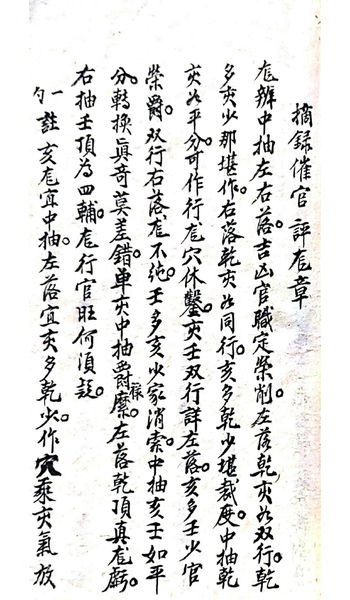 摘錄催官評龙章
龙辨中抽左右落。吉凶官職定榮削。左落乾亥如双行。乾
多亥少那堪作。右落乾亥如同行。亥多乾少堪裁度。中抽乾
亥如平分。可作行龙穴休鑿。亥壬双行詳左落。亥多壬少官
榮爵。双行右落龙不純。壬多亥少家消索。中抽亥壬如平
分。轉換真奇莫差錯。单亥中抽爵祿縻。左落乾頂真龙虧。
右抽壬頂為四輔。龙行官旺何須疑。
一勺註亥龙宜中抽。左落宜亥多乾少。作穴乘亥氣放